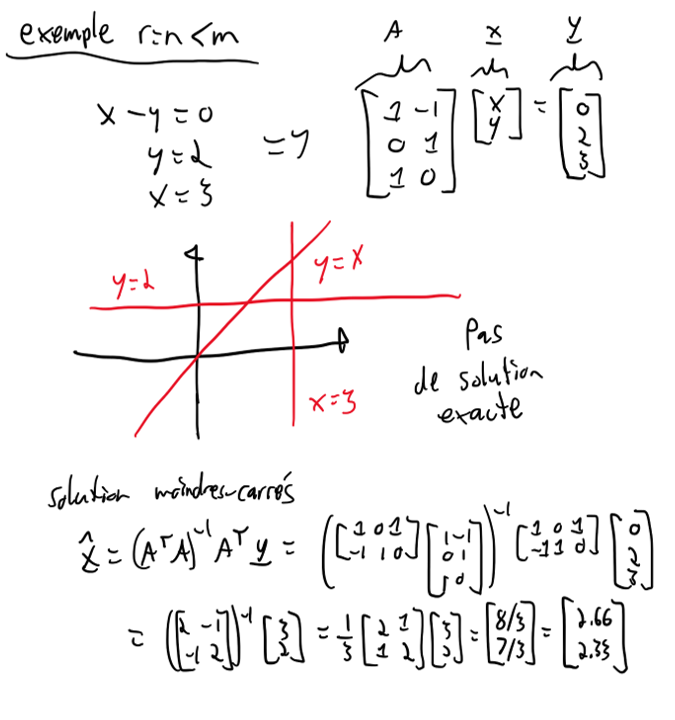 exemple r=n<m
A x y
x-y=0
y=2
x=3
=> [1 -1; 0 1; 1 0] [x; y] = [0; 2; 3]
y=2
y=x
x=3
Pas
de solution
exacte
solution moindres-carrés
x̂ = (AᵀA)⁻¹ Aᵀ y = ([1 0 1; -1 1 0] [1 -1; 0 1; 1 0])⁻¹ [1 0 1; -1 1 0] [0; 2; 3]
= ([2 -1; -1 2])⁻¹ [3; 2] = 1/3 [2 1; 1 2] [3; 2] = [8/3; 7/3] = [2.66; 2.33]